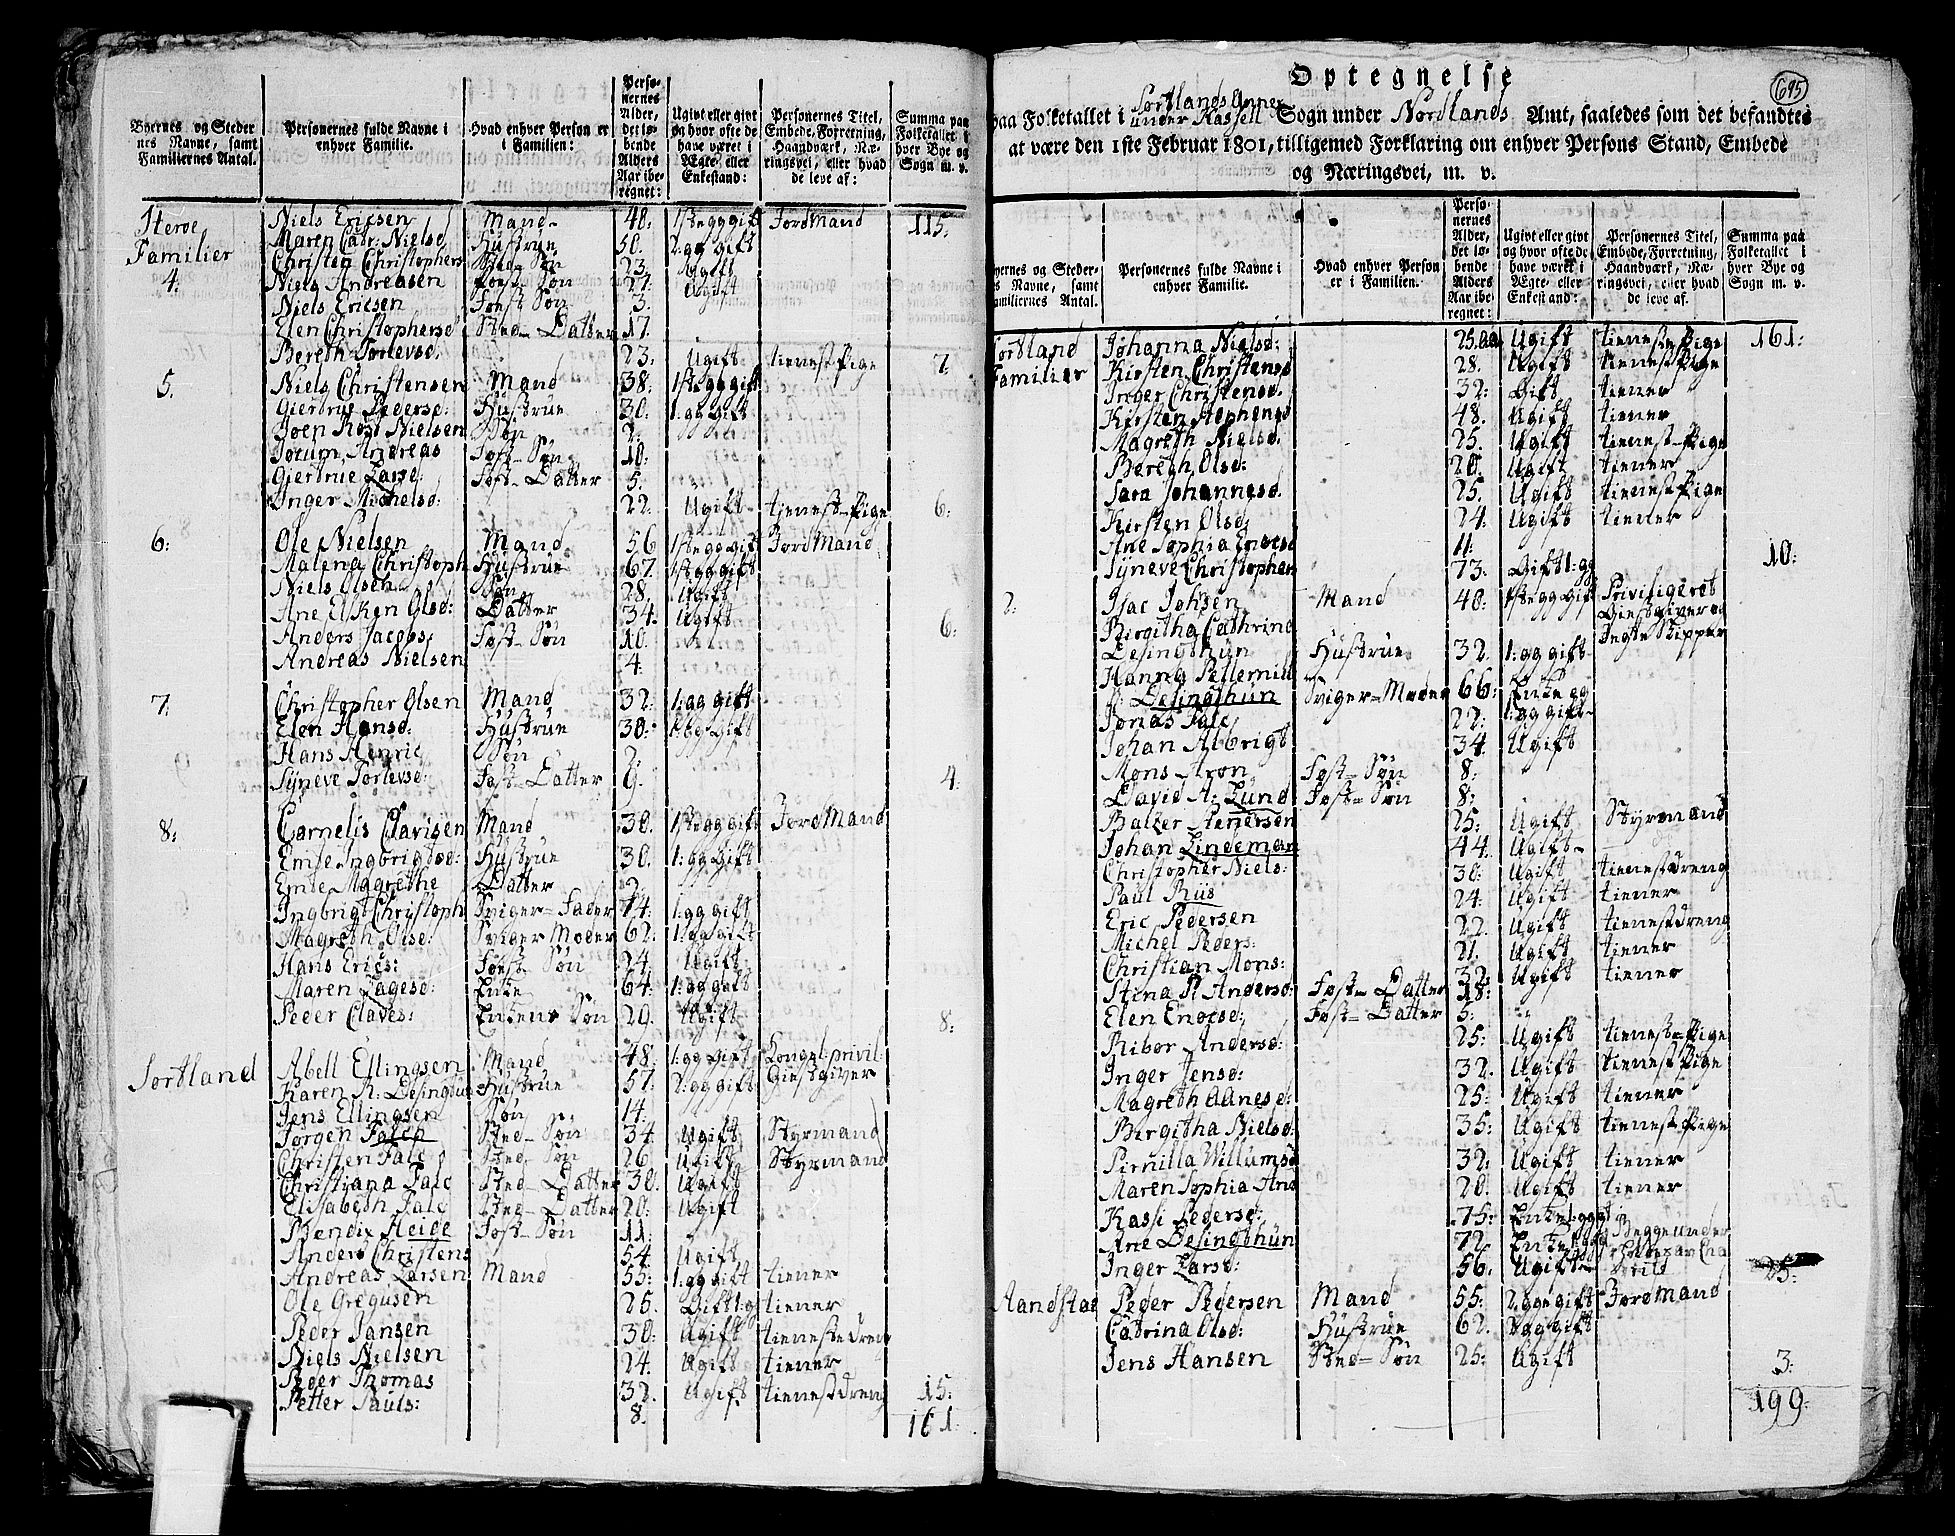 Byernes og Steder
nes Navne, samt
Familiernes Antal.
Personernes fulde Navne i
enhver Familie.
Hvad enhver Person er
i Familien:
Perso-
nernes
Alder,
det lø-
bende
Alders
Aar ibe-
regnet:
Ugivt eller givt
og hvor ofte de
have været i
Ægte- eller
Enkestand:
Personernes Titel,
Embede, Forretning,
Haandværk, Næ-
ringsvei, eller hvad
de leve af:
Summa paa
Folketallet i
hver Bye og
Sogn m. v.
Steroe Niels Ericsen Mand 48. 1ste gg gift JordMand 115.
Familier Maren Cadr: Nielsd Hustrue 50. 2. gg gift
Christen Christophers Sted Søn 23. Ugift
4. Niels Andreasen Fost Søn 27. Ugift
Niels Ericsen Fost Søn 3.
Elen Christophersd Sted-Datter 17.
Bereth Torlevsd. 23. Ugift tienest Pige 7.
5. Niels Christensen Mand 38. 1ste gg gift
Giertrue Pedersd: Hustrue 30. 1. gg gift
Joen Rost Nielsen Søn 2.
Jocum Andreas Fost-Søn 10.
Giertrue Larsd: Fost-Datter 5.
Inger Michelsd: 22. Ugift tienest-Pige 6:
6: Ole Nielsen Mand 56 1ste gg gift JordMand
Malena Christoph Hustrue 67. 1ste gg gift
Niels Olsen Søn 28. Ugift
Ane Elken Olsd: Datter 34. Ugift
Anders Jacobs: Fost-Søn 10. 6.
Andreas Nielsen 4.
7. Christopher Olsen Mand 32: 1: gg gift
Elen Hansd: Hustrue 30: 1. gg Gift
Hans Henric Søn 2.
Syneve Torlevsd: Fost-Datter 9. 4.
8: Cornelis Clavisen Mand 30. 1ste gg gift JordMand
Emte Ingbrigtsd: Hustrue 30. 1: gg Gift
Emte Magrethe Datter 2.
Ingbrigt Christoph Sviger-Fader 74: 1: gg gift
Magreth Olsd: Sviger Moder 62: 1: gg gift
Hans Erics: Fost Søn 24 Ugift
Maren Lagesd: Enke 64: 1: gg gift
Peder Claves: Enkens Søn 20. Ugift 8:
Sortland Abell Ellingsen Mand 48. 1: gg Gift Kongel: privil:
Karen R. Desingtun Hustrue 57. 2: gg gift Giestgiver
Jens Ellingsen Søn 14.
Jørgen Falch Sted-Søn 34 Ugift Styrmand
Christen Falc Sted-Søn 26 Ugift Styrmand
Christiana Falc Sted-Datter 30. Ugift
Elisabeth Falc Sted-Datter 20: Ugift
Bendix Heide Fost-Søn 11:
Anders Christens 54. Ugift
Andreas Larsen Mand 55: 1: gg gift tiener
Ole Gregusen 25. Gift 1: g tiener
Peder Jansen 30: Ugift tieneste dren
Niels Nielsen 24. Ugift tiener
Peder Thomas 32. Ugift tienest dreng 15:
Petter Pauls: 8. 161.
695
Optegnelse
paa Folketallet i Sortlands Annex under Hassell Sogn under Nordlands Amt, saaledes som det befandtes
at være den 1ste Februar 1801, tilligemed Forklaring om enhver Persons Stand, Embede
og Næringsvei, m. v.
yernes og Steder-
s Navne, samt
amiliernes Antal.
Personernes fulde Navne i
enhver Familie.
Hvad enhver Person
er i Familien.
Perso-
nernes
Alder,
det lø-
bende
Alders
Aar ibe-
regnet:
Ugivt eller givt
og hvor ofte de
have været i
Ægte- eller
Enkestand:
Personernes Titel,
Embede, Forretning,
Haandværk, Næ-
ringsvei, eller hvad
de leve af.
Summa paa
Folketallet i
hver Bye og
Sogn m. v.
Sortland Johanna Nielsd: 25. Aa Ugift tieneste Pige 161:
Familier Kirsten Christensd 28. Ugift tienest Pige
Inger Christensd. 32: Gift tiener
Kirsten Stephensd 48. Ugift tiener
Magreth Nielsd. 25. Ugift tienest-Pige
Bereth Olsd: 20. Ugift tiener
Sara Johannesd. 25. Ugift tienest Pige
Kirsten Olsd. 24: Ugift tiener
Ane Sophia Enocsd 11: 10:
Syneve Christophers 73: Gift 1: gg
2: Isac Johsen Mand 40: 1ste gg Gift Priviligeret
Birgitha Cathrina Giestgiver og
Desingthun Hustrue 32. 1: gg gift Jegte Skipper
Hanna Pellernill
P: Desingthun Sviger-Moder 66: Enke og
Jonas Falc 22: 1: gg gift
Johan Albrigt 34 Ugift
Mons Aron Fost-Søn 8:
David A: Lund Fost-Søn 8:
Balzer Henersen 25: Ugift Styrmand
Johan Lindeman 44. Ugift
Christopher Niels: 30: Ugift tienest dreng
Paul Riis 24: Ugift tiener
Eric Pedersen 22. Ugift tienest dreng
Michel Peders: 21. Ugift tiener
Christian Mons: 32: Ugift tiener
Stina P. Andersd: Fost-Datter 18:
Elen Enocsd: Fost-Datter 5:
Ribor Andersd: 25: Ugift tienest-Pige
Inger Jensd: 32. Ugift tienest Pige
Magreth Aanesd: 25: Ugift tiener
Birgitha Nielsd: 35: Ugift tienest Pige
Pirnilla Willumsd 32: Ugift tiener
Maren Sophia And 20. Ugift tiener
Kassi Pedersd: 75: Enke 1. gg
Ane Desingthun 72. Enke Begge under
Inger Larsd: 56. Ugift 25:
Aandstad Peder Pedersen Mand 55: 2. gge gift JordMand
Catrina Olsd: Hustrue 62. 2 gg gift
Jens Hansen Sted-Søn 25: Ugift 3:
199.